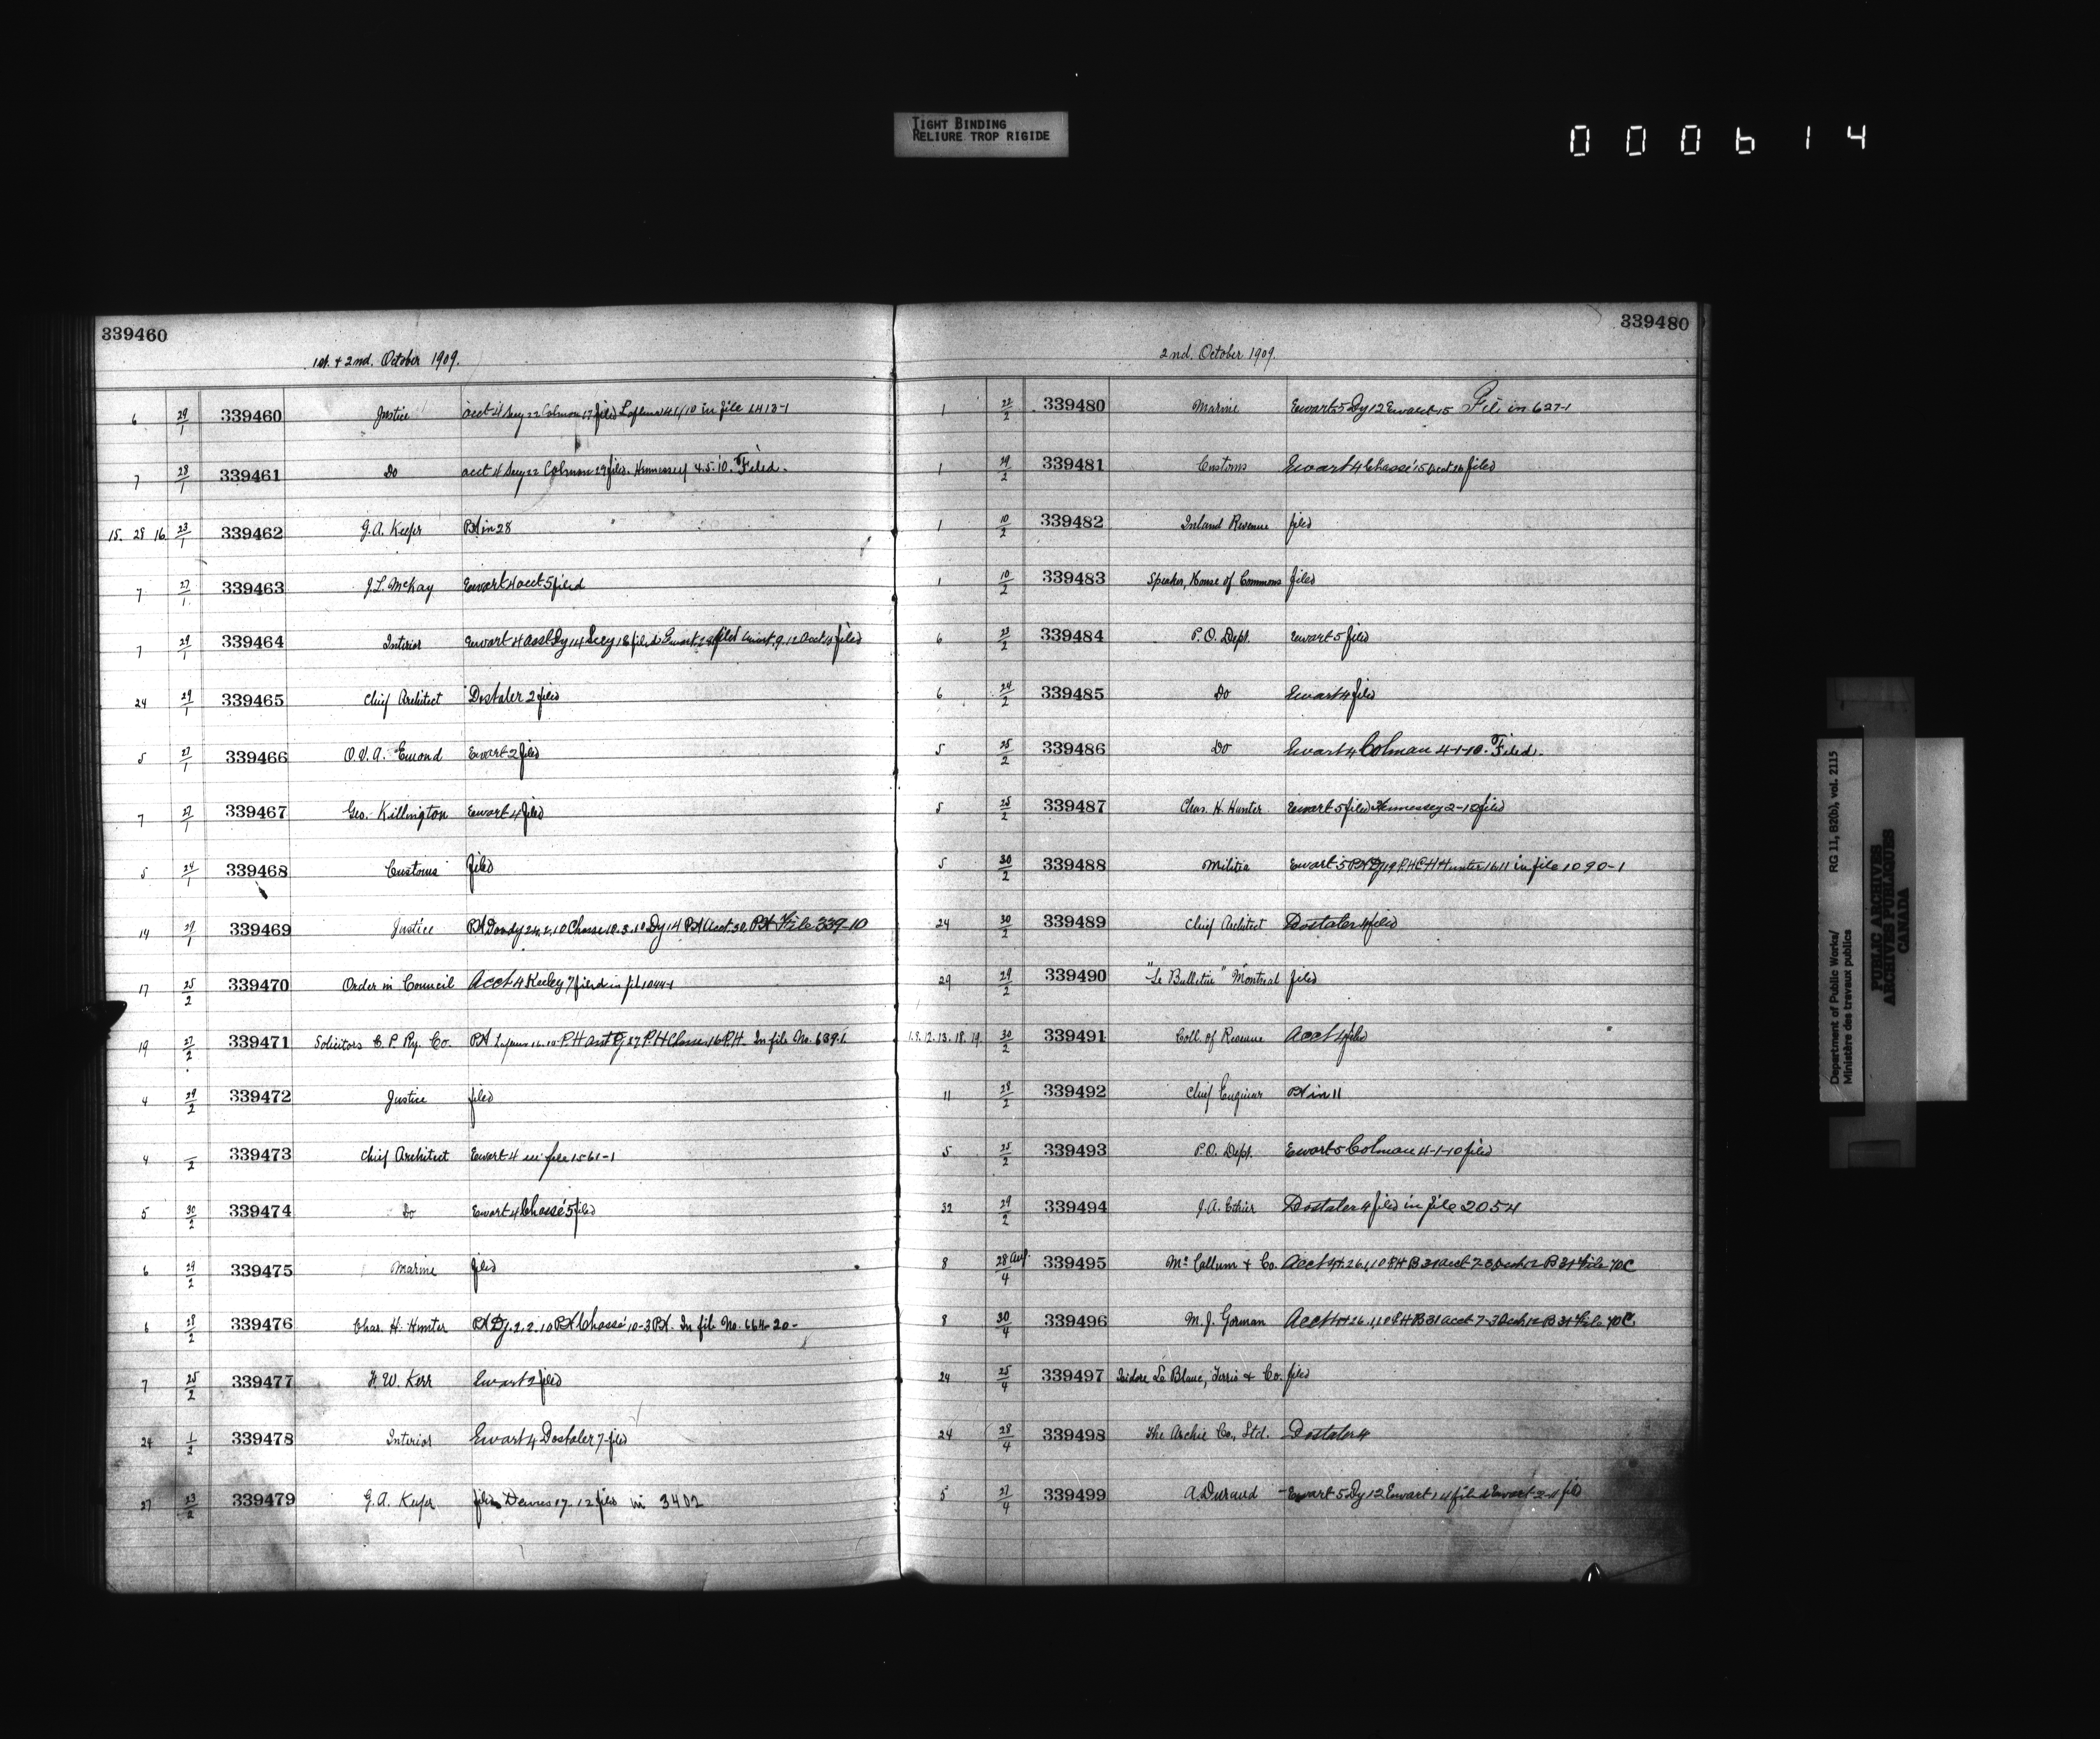 TIGHT BINDING
RELIURE TROP RIGIDE
000614
339460
1st. & 2nd. October 1909.
6 29/1 339460 Justice acct 4 Secy 22 Colman 17 filed in file 1413-1
7 28/1 339461 Do acct 4 Secy 22 Colman 29 filed. Hennessey 4.5.10. Filed.
15. 28 16 23/1 339462 G. A. Keefer PH in 28
7 27/1 339463 J. L. McKay Ewart 4 acct 5 filed
7 29/1 339464 Interior Ewart 4 asst Dy 14 Secy 18 filed Ewart 28 filed Ewart 9.12 Acct 13 filed
24 29/1 339465 Chief Architect Dostaler 2 filed
5 27/1 339466 O. V. A. Emond Ewart 2 filed
7 27/1 339467 Geo. Killington Ewart 4 filed
5 24/1 339468 Customs filed
14 29/1 339469 Justice PH Chasse 10.3.10 Dy 14 PH Acct. 30 PH File 339-10
17 25/2 339470 Order in Council Acct 4 Keeley 7 filed in file 1044-1
19 27/2 339471 Solicitors C. P. Ry. Co. PH PH asst PH Chasse 16 P.H. In file No. 639.1.
4 29/2 339472 Justice filed
4 /2 339473 Chief Architect Ewart 4 in file 1561-1
5 30/2 339474 Do Ewart 4 Chassé 5 filed
6 29/2 339475 Marine filed
6 28/2 339476 Chas. H. Hunter PH Dy. 2.2.10 PH Chassé 10-3 PH. In file No. 664-20-
7 25/2 339477 H. W. Kerr Ewart 2 filed
24 1/2 339478 Interior Ewart 4 Dostaler 7 filed
27 23/2 339479 G. A. Keefer filed 17.12 filed in 3402
339480
2nd. October 1909.
1 22/2 339480 Marine Ewart 5 Dy 12 Ewart 15 File in 627-1
1 29/2 339481 Customs Ewart 4 Chassé 15 acct 16 filed
1 10/2 339482 Inland Revenue filed
1 10/2 339483 Speaker, House of Commons filed
6 23/2 339484 P. O. Dept. Ewart 5 filed
6 24/2 339485 Do Ewart 4 filed
5 25/2 339486 Do Ewart 4 Colman 4-1-10. Filed.
5 25/2 339487 Chas. H. Hunter Ewart 5 filed Hennessey 2-12 filed
5 30/2 339488 Militia Ewart 5 PH Dy 19 P.H. C H Hunter 16 11 in file 1090-1
24 30/2 339489 Chief Architect Dostaler 4 filed
29 29/2 339490 "Le Bulletin" Montreal filed
1.8.12.13.18.19. 30/2 339491 Coll. of Revenue Acct 4 filed
11 28/2 339492 Chief Engineer PH in 11
5 25/2 339493 P.O. Dept. Ewart 5 Colman 4-1-10 filed
32 29/2 339494 J. A. Ethier Dostaler 4 filed in file 2054
8 28 Aug/4 339495 Mc Callum & Co. Acct 26.1.10 PH B 31 acct 7-3 B 31 File 70C
8 30/4 339496 M. J. Gorman Acct 26.1.10 PH B 31 acct 7-3 B 31 File 70C.
24 25/4 339497 Isidore Le Blanc, Ferris & Co. filed
24 28/4 339498 The Archie Co., Ltd. Dostaler 4
5 27/4 339499 A Durand Ewart 5 Dy 12 Ewart 14 filed Ewart 2-4 filed
Department of Public Works/ RG 11, B2(b), vol. 2115
Ministère des travaux publics
PUBLIC ARCHIVES
ARCHIVES PUBLIQUES
CANADA